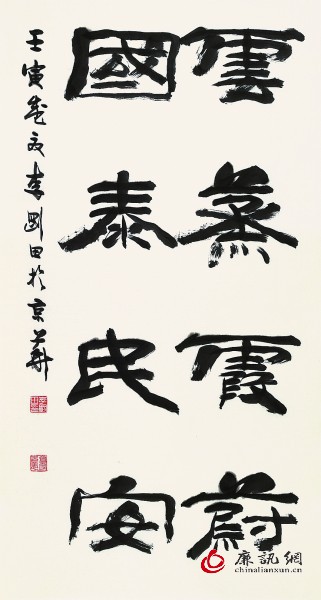 雲蒸霞蔚
國泰民安
壬寅歲夏李剛田於京華
廉訊網
chinalianxun.cn